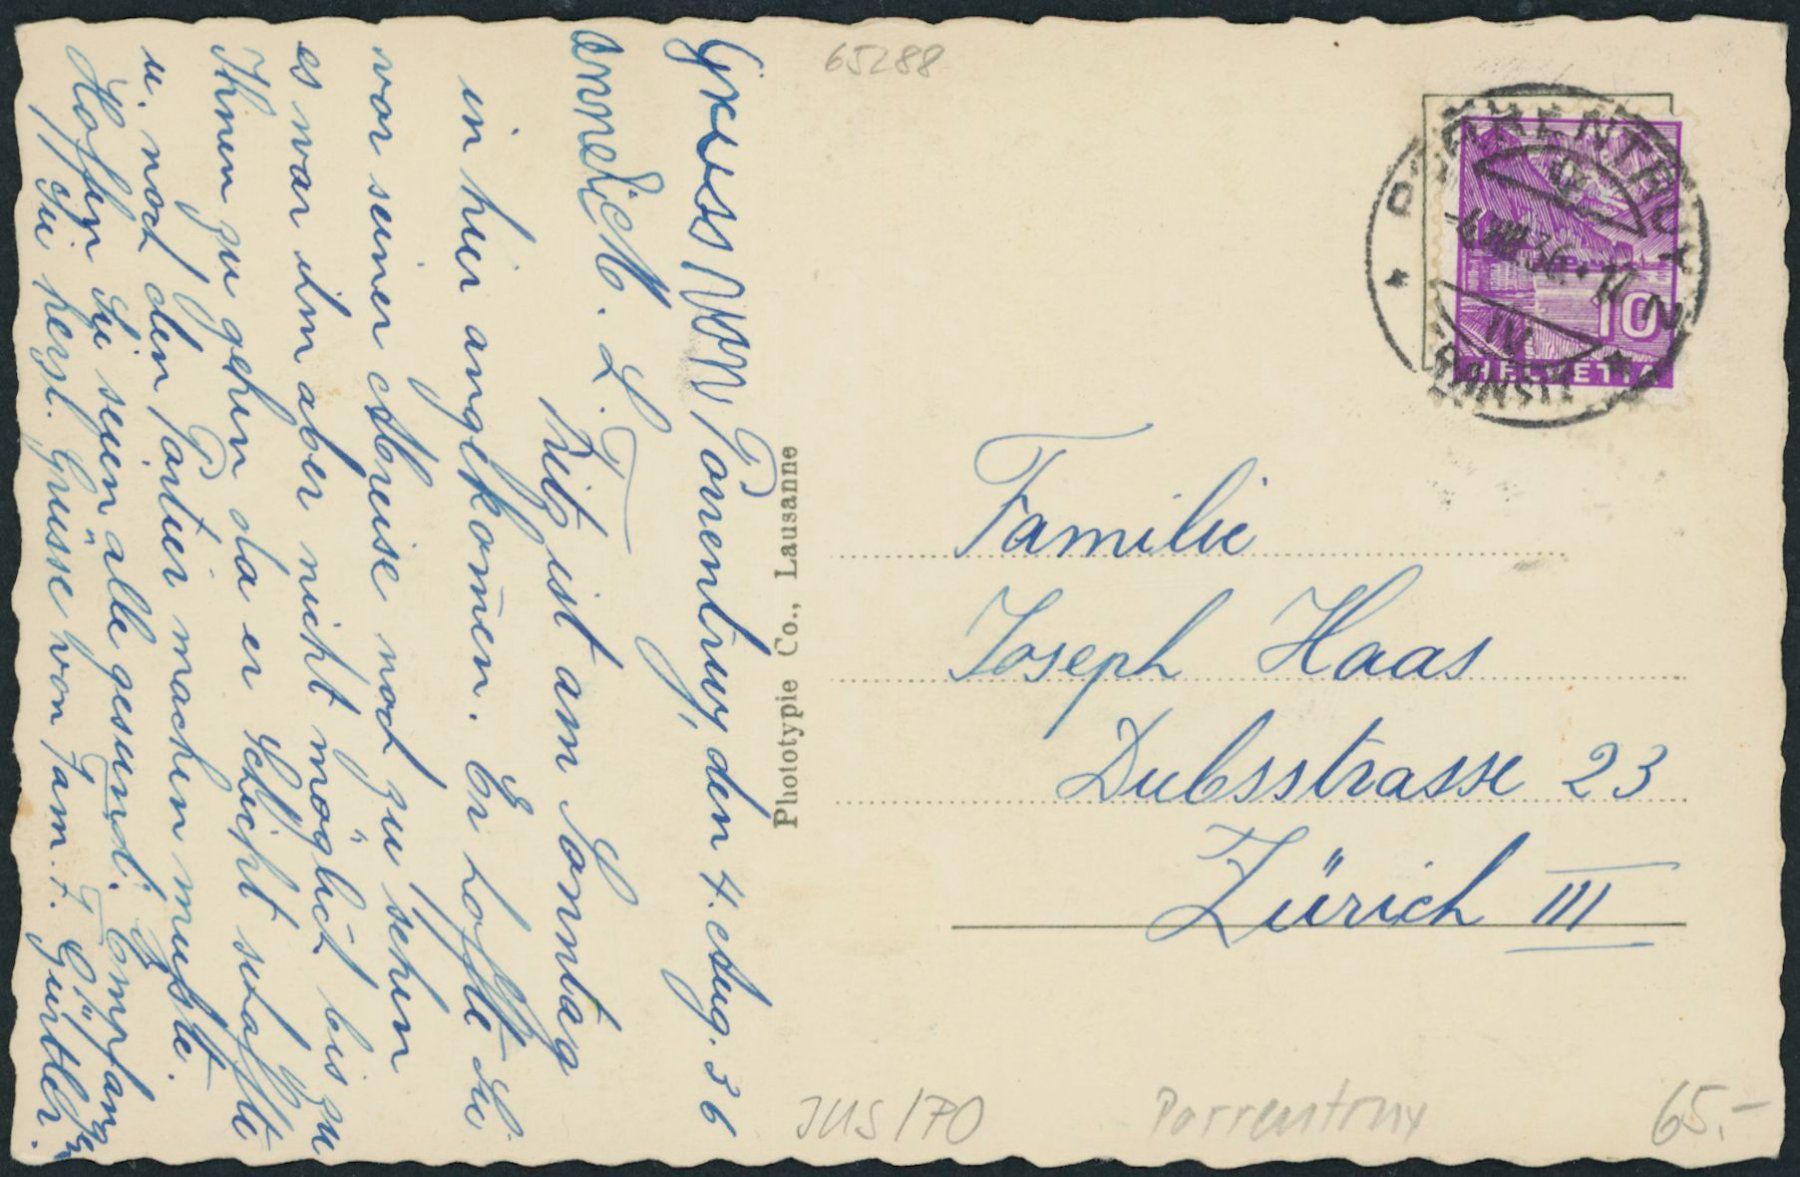 65288
PORRENTRUY
-4.VIII.36.-17
10
HELVETIA
Porrentruy, den 4. Aug. 36
M. L. F.
Fritz ist am Sonntag
in hier angekom̄en. Er hoffte Sie
vor seiner Abreise noch zu sehen
es war ihm aber nicht möglich bis zu
Ihnen zu gehen da er Schicht schaffte
u. noch den Portier machen mußte.
Hoffen Sie seien alle gesund. Empfangen
Sie herzl. Grüsse von Fam. F. Gürtler.
Gruss von
Phototypie Co., Lausanne
Familie
Joseph Haas
Dubsstrasse 23
Zürich III
JUS/70
Porrentruy
65.-